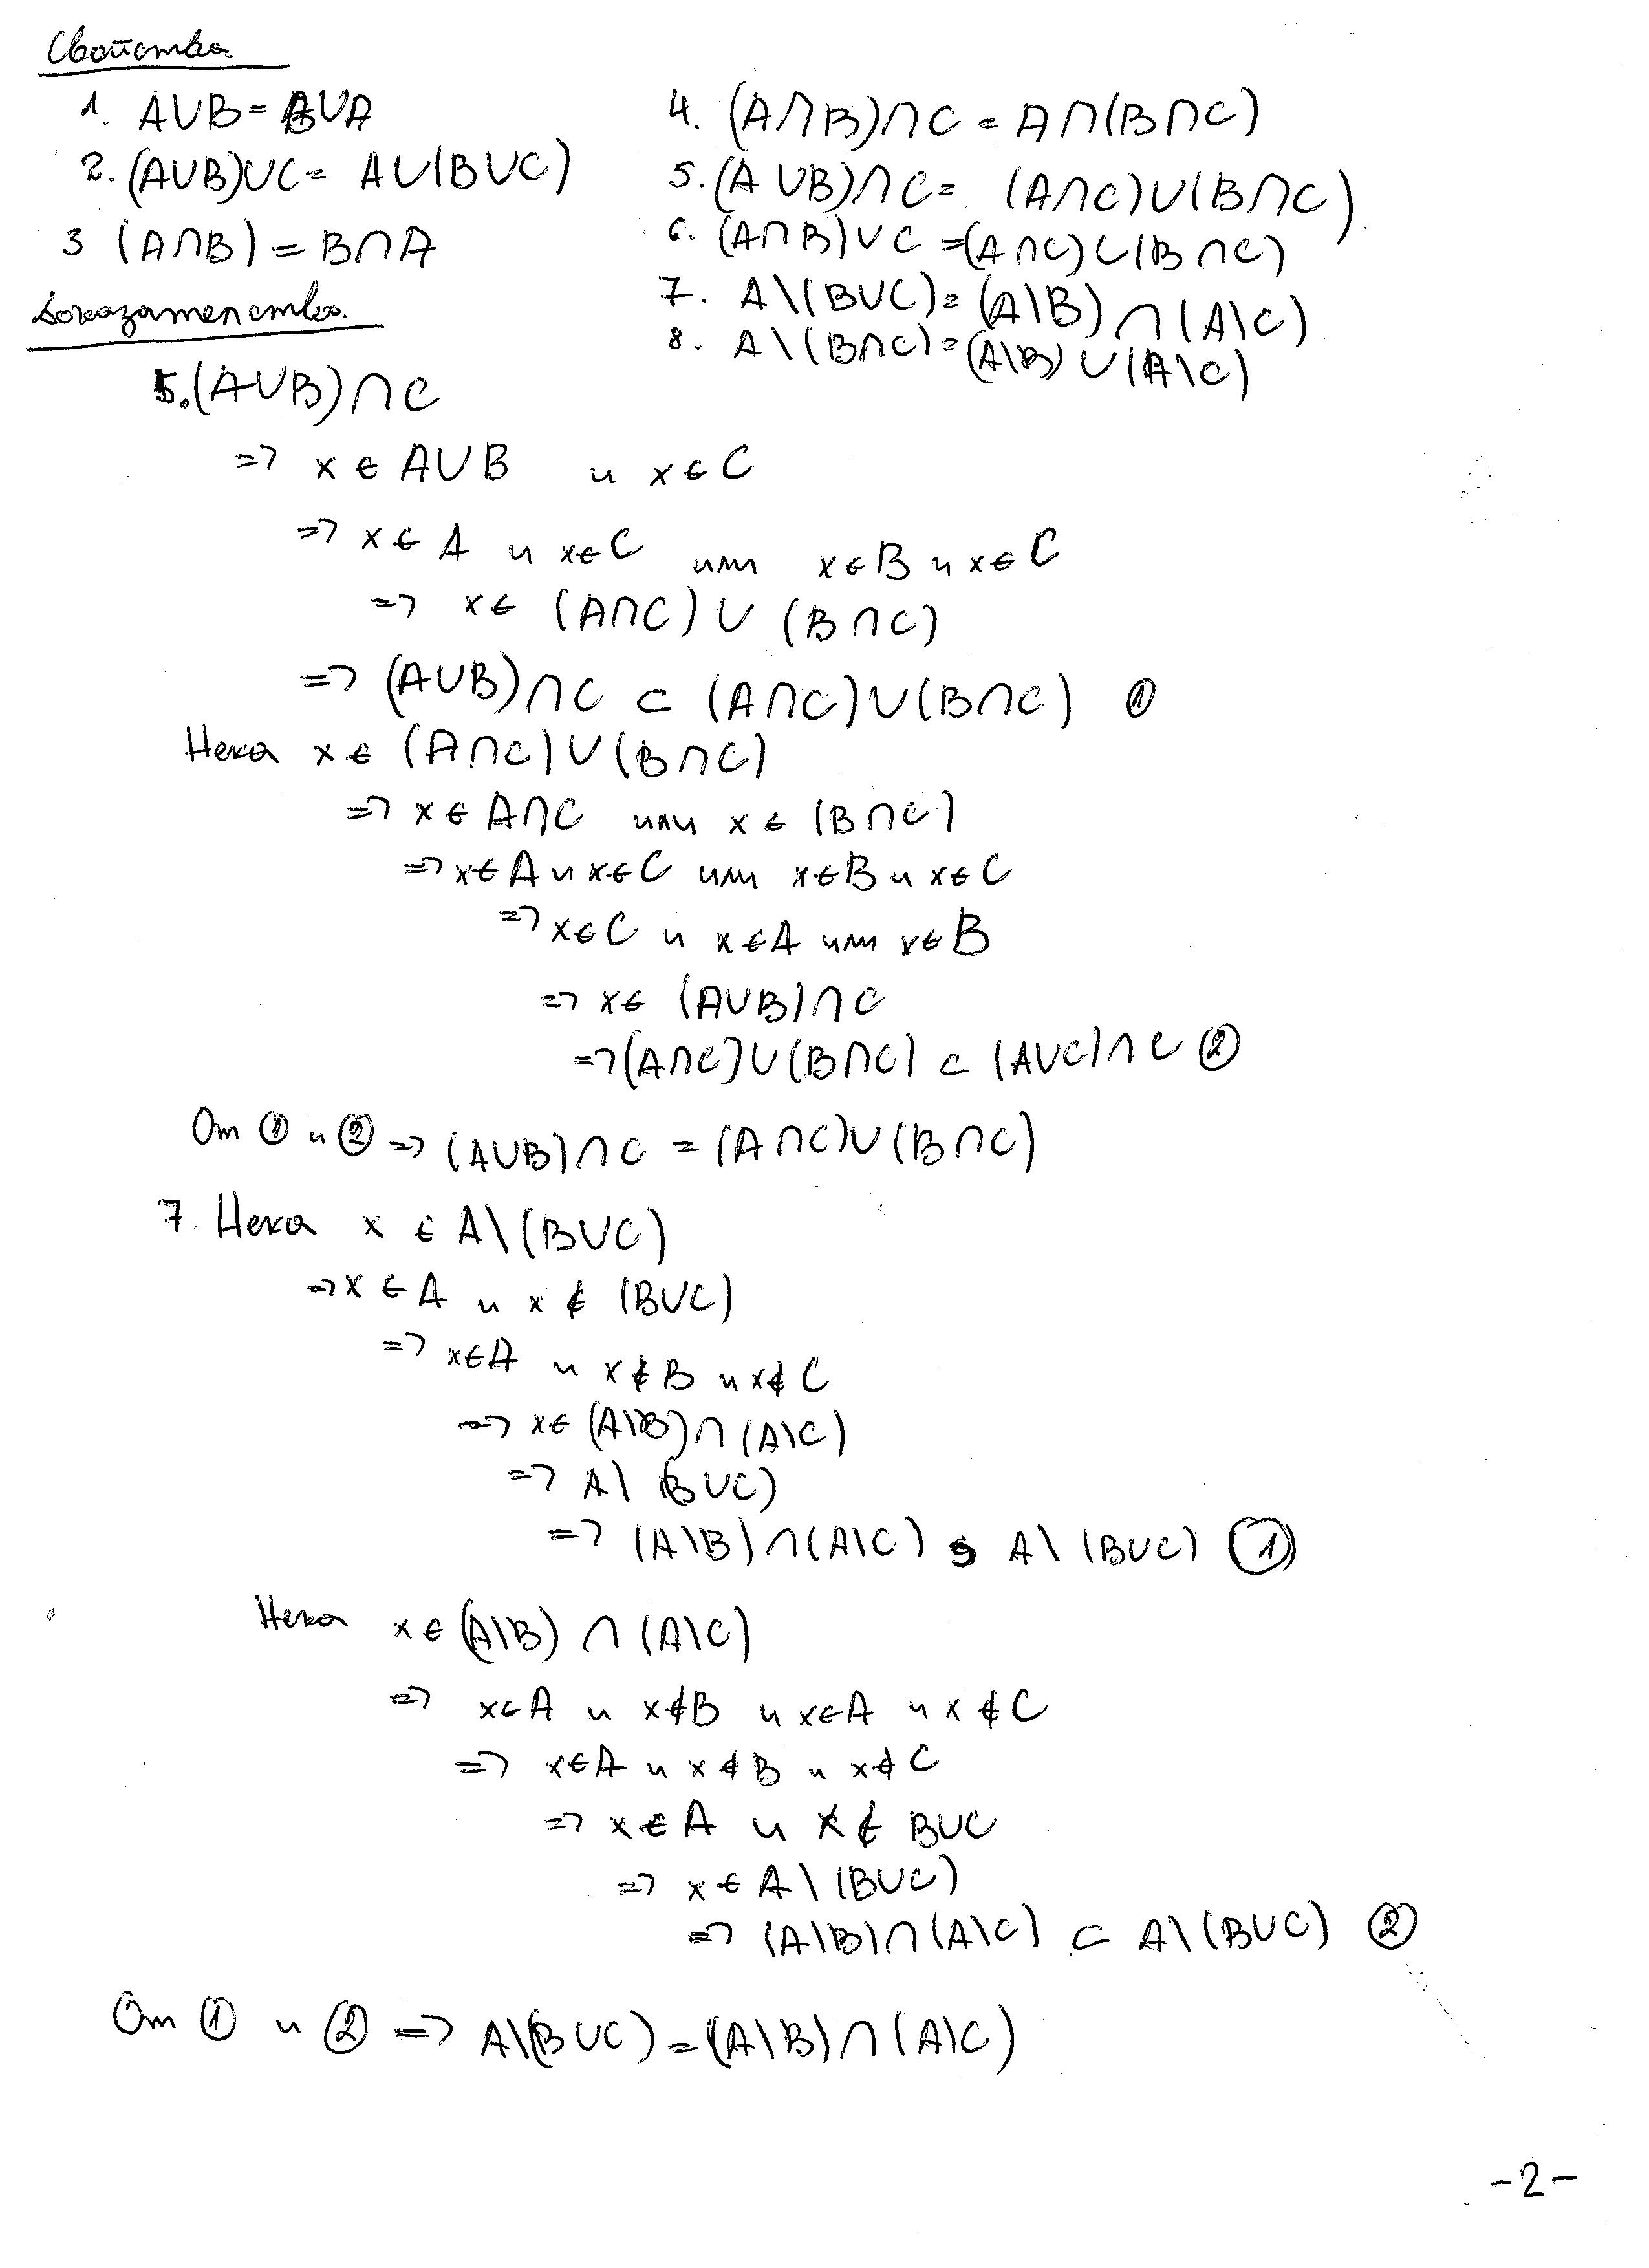 Свойства
1. A∪B = B∪A
2. (A∪B)∪C = A∪(B∪C)
3 (A∩B) = B∩A
4. (A∩B)∩C = A∩(B∩C)
5. (A∪B)∩C = (A∩C)∪(B∩C)
6. (A∩B)∪C = (A∩C)∪(B∩C)
7. A\(B∪C) = (A\B)∩(A\C)
8. A\(B∩C) = (A\B)∪(A\C)
Доказателство.
5. (A∪B)∩C
=> x ∈ A∪B и x ∈ C
=> x ∈ A и x ∈ C или x ∈ B и x ∈ C
=> x ∈ (A∩C) ∪ (B∩C)
=> (A∪B)∩C ⊂ (A∩C)∪(B∩C) ①
Нека x ∈ (A∩C)∪(B∩C)
=> x ∈ A∩C или x ∈ (B∩C)
=> x ∈ A и x ∈ C или x ∈ B и x ∈ C
=> x ∈ C и x ∈ A или x ∈ B
=> x ∈ (A∪B)∩C
=> (A∩C)∪(B∩C) ⊂ (A∪C)∩C ②
От ① и ② => (A∪B)∩C = (A∩C)∪(B∩C)
7. Нека x ∈ A\(B∪C)
=> x ∈ A и x ∉ (B∪C)
=> x ∈ A и x ∉ B и x ∉ C
=> x ∈ (A\B)∩(A\C)
=> A\(B∪C)
=> (A\B)∩(A\C) A\(B∪C) ①
Нека x ∈ (A\B) ∩ (A\C)
=> x ∈ A и x ∉ B и x ∈ A и x ∉ C
=> x ∈ A и x ∉ B и x ∉ C
=> x ∈ A и x ∉ B∪C
=> x ∈ A\(B∪C)
=> (A\B)∩(A\C) ⊂ A\(B∪C) ②
От ① и ② => A\(B∪C) = (A\B)∩(A\C)
-2-